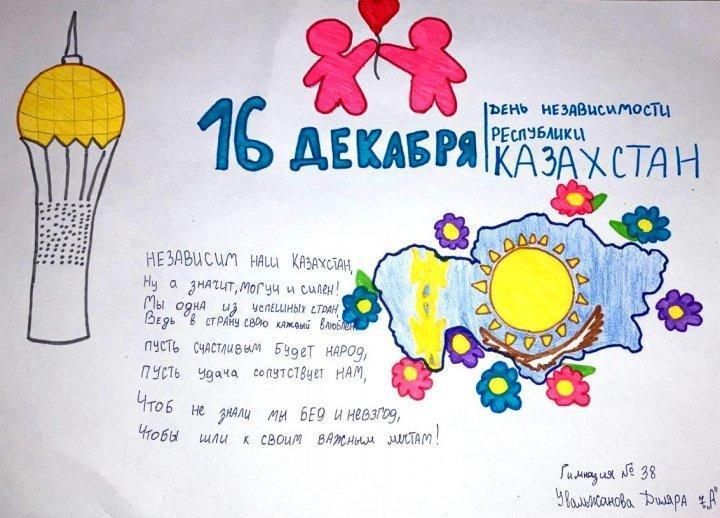 16 ДЕКАБРЯ
ДЕНЬ НЕЗАВИСИМОСТИ
РЕСПУБЛИКИ
КАЗАХСТАН
НЕЗАВИСИМ НАШ КАЗАХСТАН,
Ну а значит, могуч и силен!
Мы одна из успешных стран,
Ведь в страну свою каждый влюблен.
пусть счастливым будет народ,
пусть удача сопутствует нам,
Чтоб не знали мы бед и невзгод,
Чтобы шли к своим важным мечтам!
Гимназия № 38
Увальжанова Диляра 7„А"